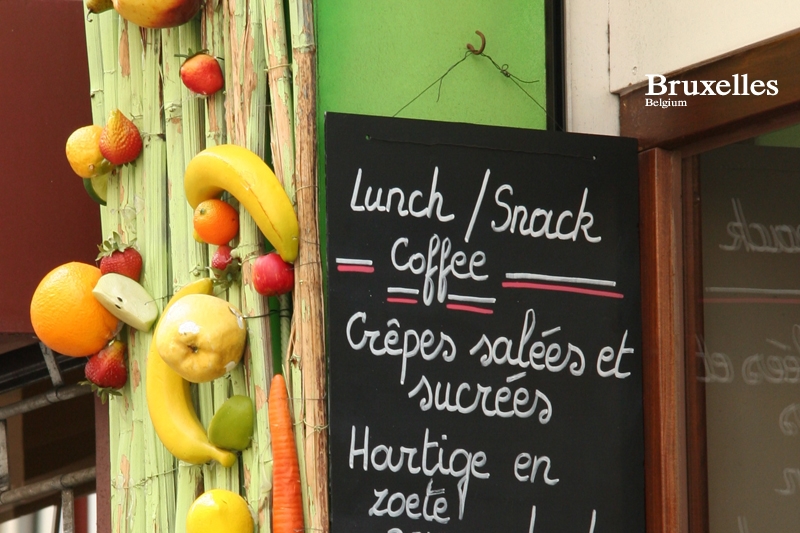 Bruxelles
Belgium
Lunch / Snack
Coffee
Crêpes salées et
sucrées
Hartige en
zoete